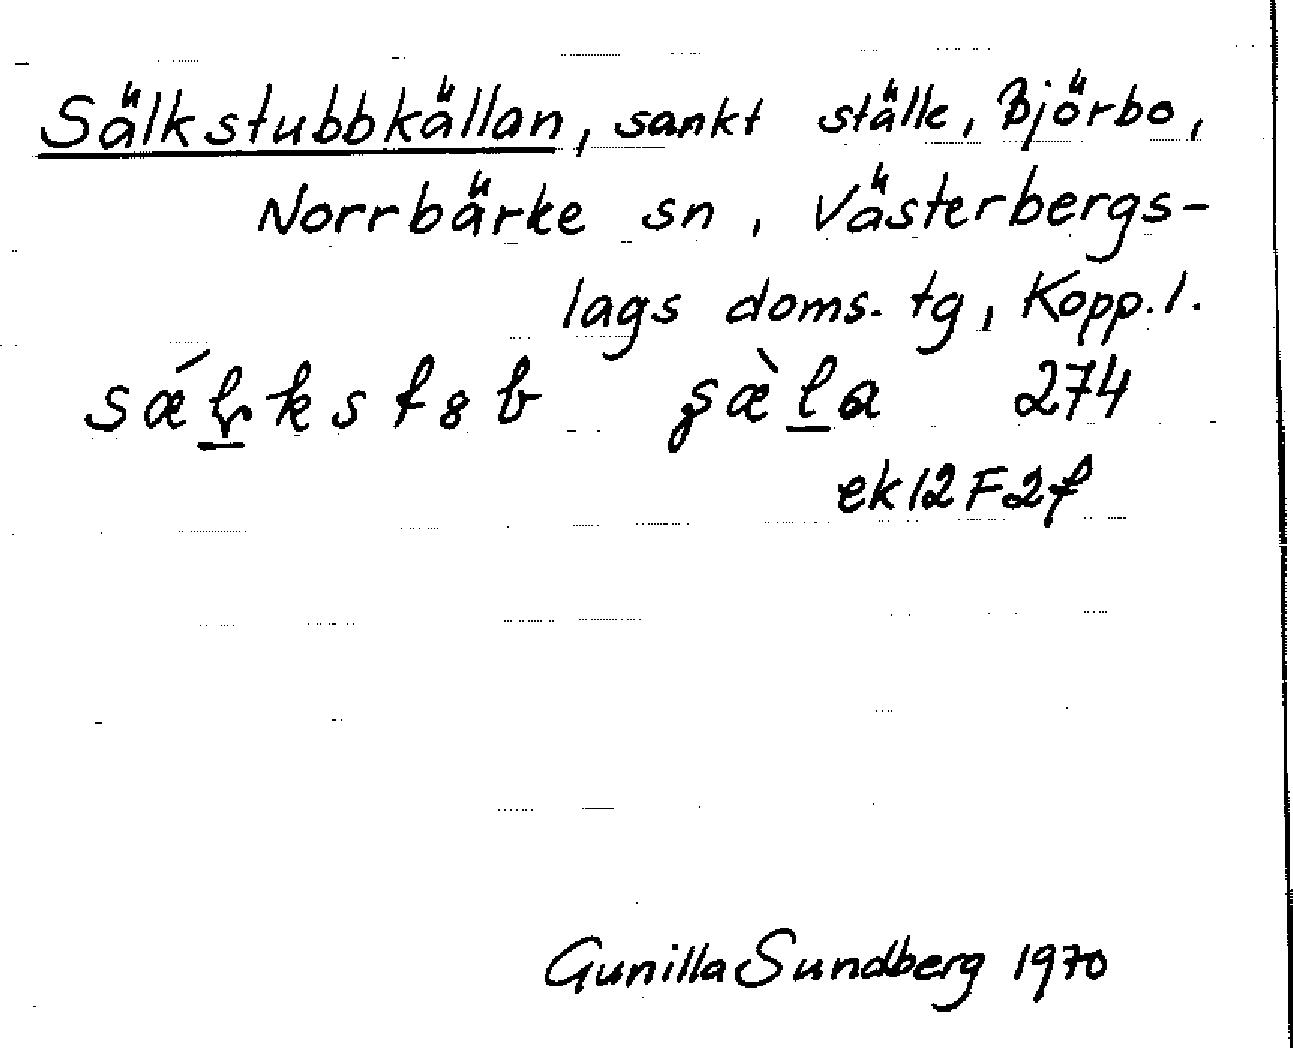 Sälkstubbkällan, sankt ställe, Björbo,
Norrbärke sn, Västerbergs-
lags doms. tg, Kopp. l.
274
ek12F2f
Gunilla Sundberg 1970